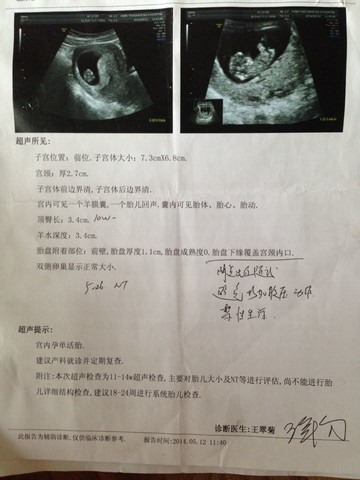 超声所见:
子宫位置：前位.子宫体大小：7.3cmX6.8cm.
宫颈：厚2.7cm.
子宫体前边界清,子宫体后边界清.
宫内可见一个羊膜囊,一个胎儿回声.囊内可见胎体、胎心、胎动.
顶臀长：3.4cm. 10w-
羊水深度：3.4cm.
胎盘附着部位：前壁,胎盘厚度1.1cm,胎盘成熟度0,胎盘下缘覆盖宫颈内口.
双侧卵巢显示正常大小.
5.26 NT
避免
禁性生活
超声提示:
宫内孕单活胎.
建议产科就诊并定期复查.
附注:本次超声检查为11-14w超声检查,主要对胎儿大小及NT等进行评估,尚不能进行胎
儿详细结构检查,建议18-24周进行系统胎儿检查.
诊断医生:王翠菊
此报告为辅助诊断,仅供临床诊断参考. 报告时间:2014.05.12 11:40